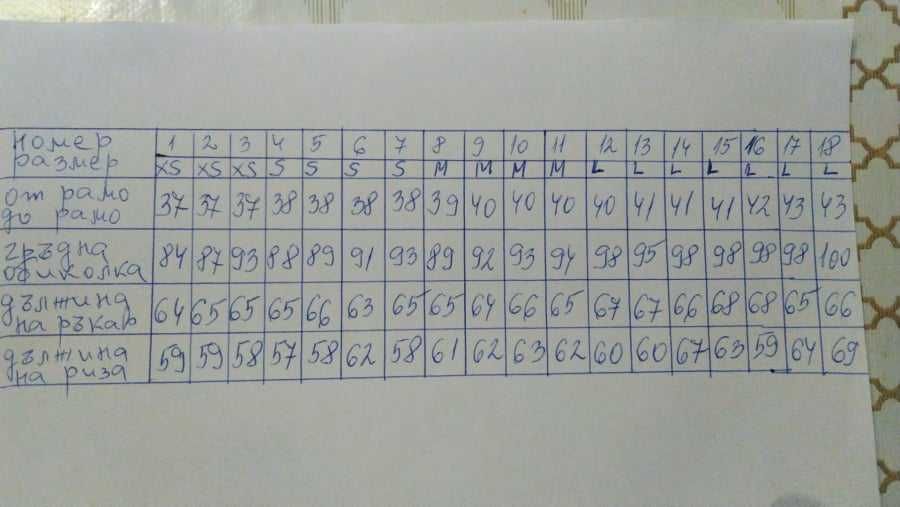 номер 1 2 3 4 5 6 7 8 9 10 11 12 13 14 15 16 17 18
размер XS XS XS S S S S M M M M L L L L L L L
от рамо
до рамо 37 37 37 38 38 38 38 39 40 40 40 40 41 41 41 42 43 43
гръдна
обиколка 84 87 93 88 89 91 93 89 92 93 94 98 95 98 98 98 98 100
дължина
на ръкав 64 65 65 65 66 63 65 65 64 66 65 67 67 66 68 68 65 66
дължина
на риза 59 59 58 57 58 62 58 61 62 63 62 60 60 67 63 59 64 69